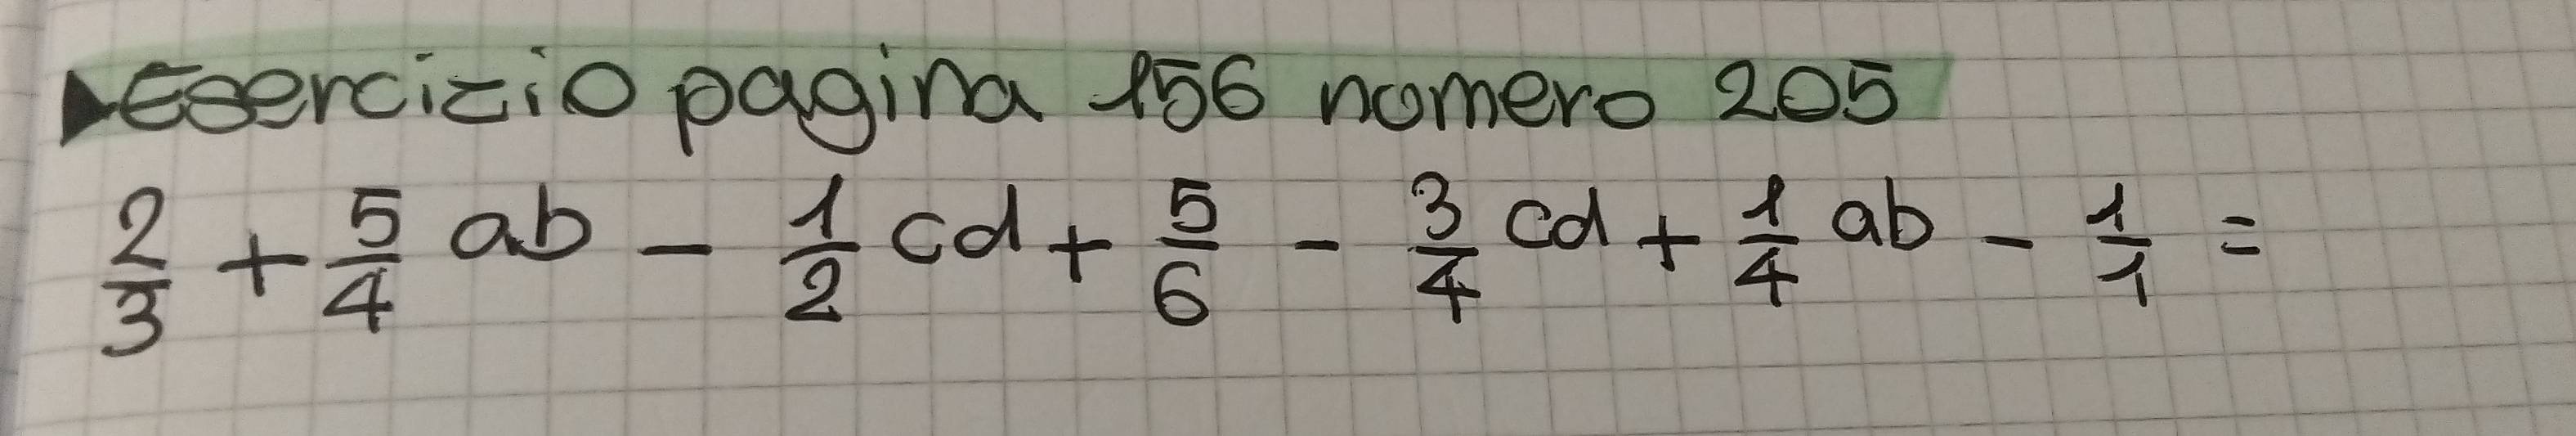 ▶Esercizio pagina 156 nomero 205
2/3 + 5/4 ab - 1/2 cd + 5/6 - 3/4 cd + 1/4 ab - 1/1 =